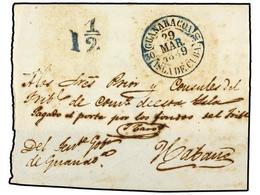 1 1/2
GUANABACOA
29
MAR.
1859
ISLA DE CUBA
A los Sres Prior y Consules del
Trib.l de com.o de esta Isla
Pagado el porte por los fondos del Trib.l
Del
de Guanab.a
Habana